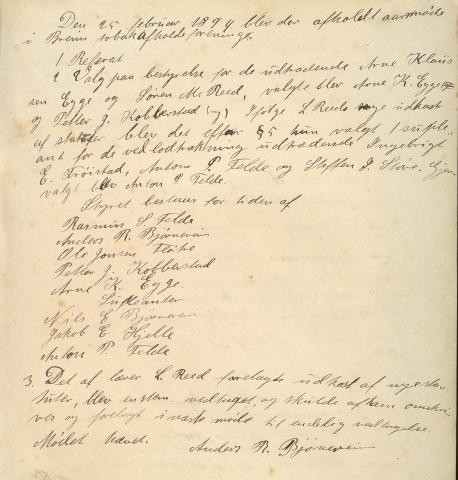 Den 25 februar 1894 blev der afholdt aarsmöte
i Breims tobakafholdsforening.
1 Referat
2 Valg paa bestyrelse for de udtrædende Arne Klaus
sen Egge og Søren M. Reed, valgtes blev Arne K. Egge
og Petter J. Kobberstad Ifölge L Reeds nye udkast
af statuter blev det efter § 5 kun valgt suple
ant for de ved lodtrækning udtrædende Ingebrigt
E. Tröistad, Antoni P. Felde og Steffen J. Störe. Gjen
valgt blev Antoni P. Felde.
Styret bestaar for tiden af
Rasmus S. Felde
Anders R. Björnereim
Ole Jonsen Flölve
Petter J. Kobberstad
Arne K. Egge.
Supleanter
Nils E Björnereim
Jakob E. Hjelle
Antoni P. Felde
3. Det af lærer L. Reed forelagte udkast af nye sta
tuter, blev enstem. vedtaget, og skulde afham omskri
ves og forelagt i næste möde til endelig vedtagelse.
Mödet hævet.
Anders R. Björnereim